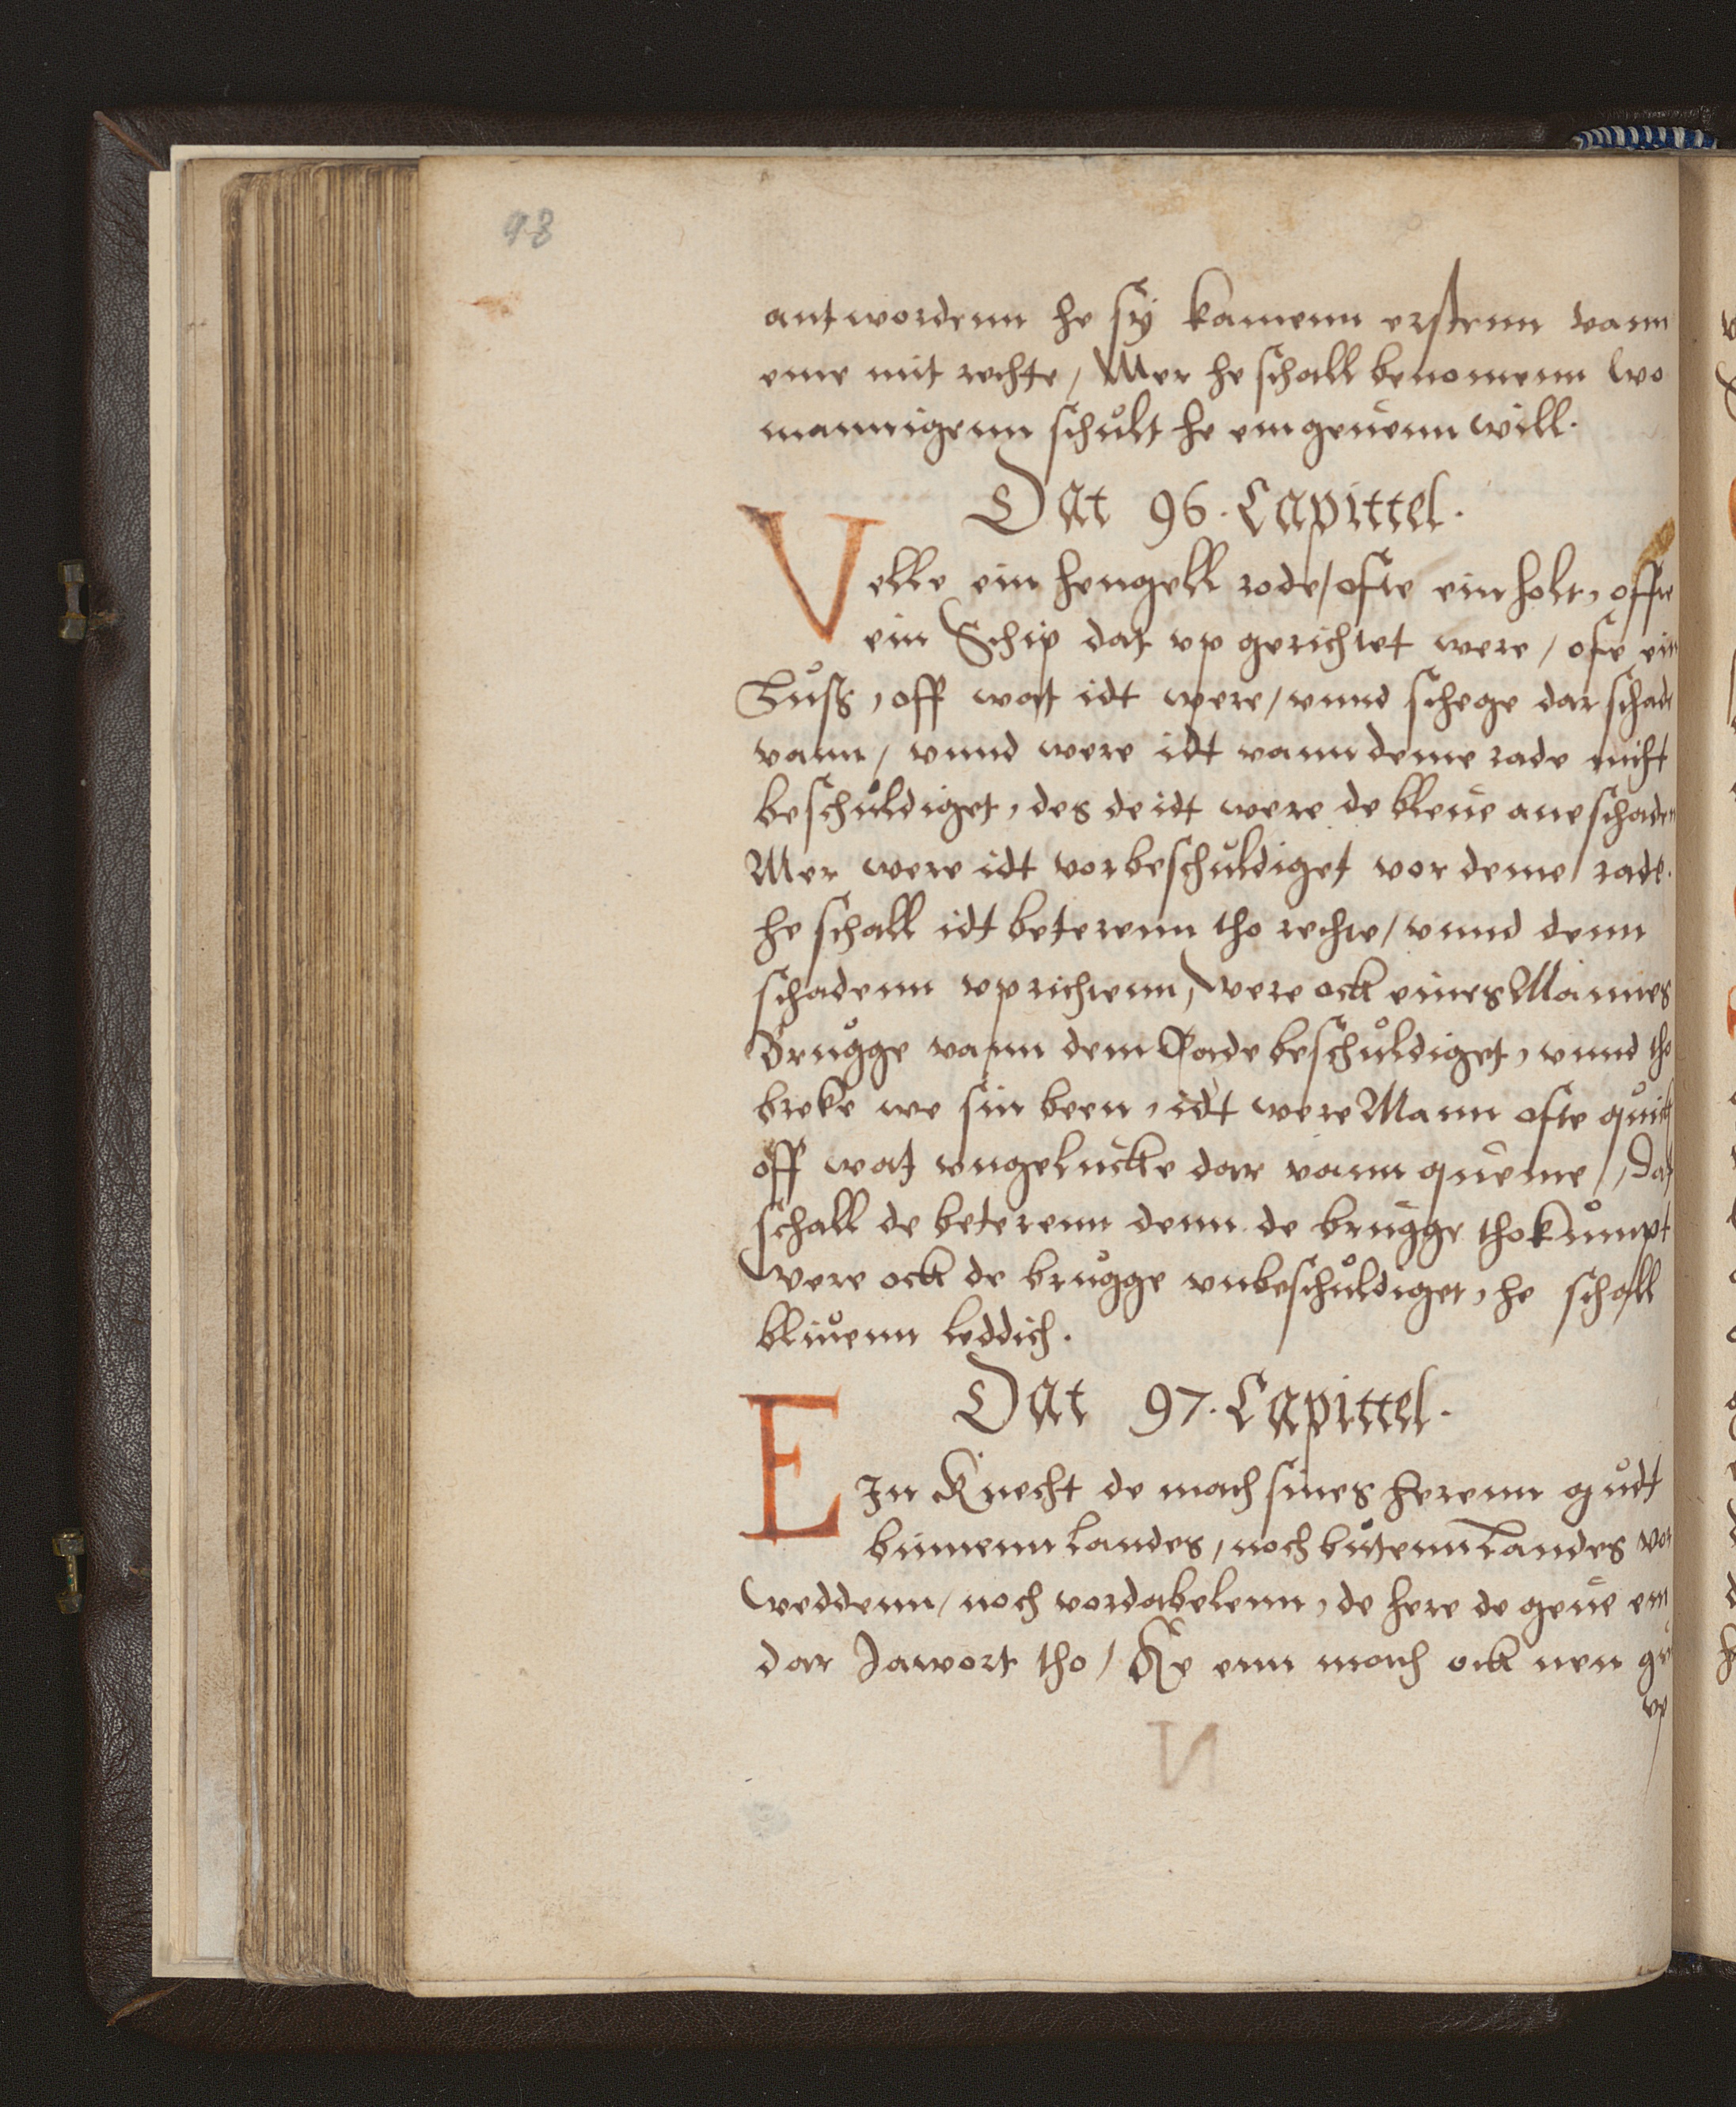 98
antwordenn he sy kamenn erstenn vann
eme mit rechte, Mer he schall benomenn wo
mannigenn schůlt he em geuenn will.
Dat 96. Capittel.
Velle ein hengell rode, ofte ein holt, offte
ein Schip dat vp gerichtet were, ofte ein
Luß, off wat idt were, vnnd schege dar schade
vann, vnnd were idt vann deme rade nicht
beschůldiget, des de idt were de bleue ane schaden
Mer were idt vorbeschůldiget vor deme rade.
he schall idt beterenn tho rechte, vnnd denn
schadenn vprichtenn, Were ock eines Mannes
Brůgge vann dem Rade beschůldiget, vnnd tho
breke we sin been, idt were Mann ofte quick
off wat vngelucke dar vann queme, Dat
schall de beterenn denn de brůgge thokůmpt
Were ock de brůgge vnbeschůldiget, he schall
bliuenn leddich.
Dat 97. Capittel.
EIn Knecht de mach sines herenn gůdt
binnenn Landes, noch bůtenn Landes vor
weddenn, noch vordabelenn, de here de geue em
dar Jawort tho, He enn mach ock nen gu
vp